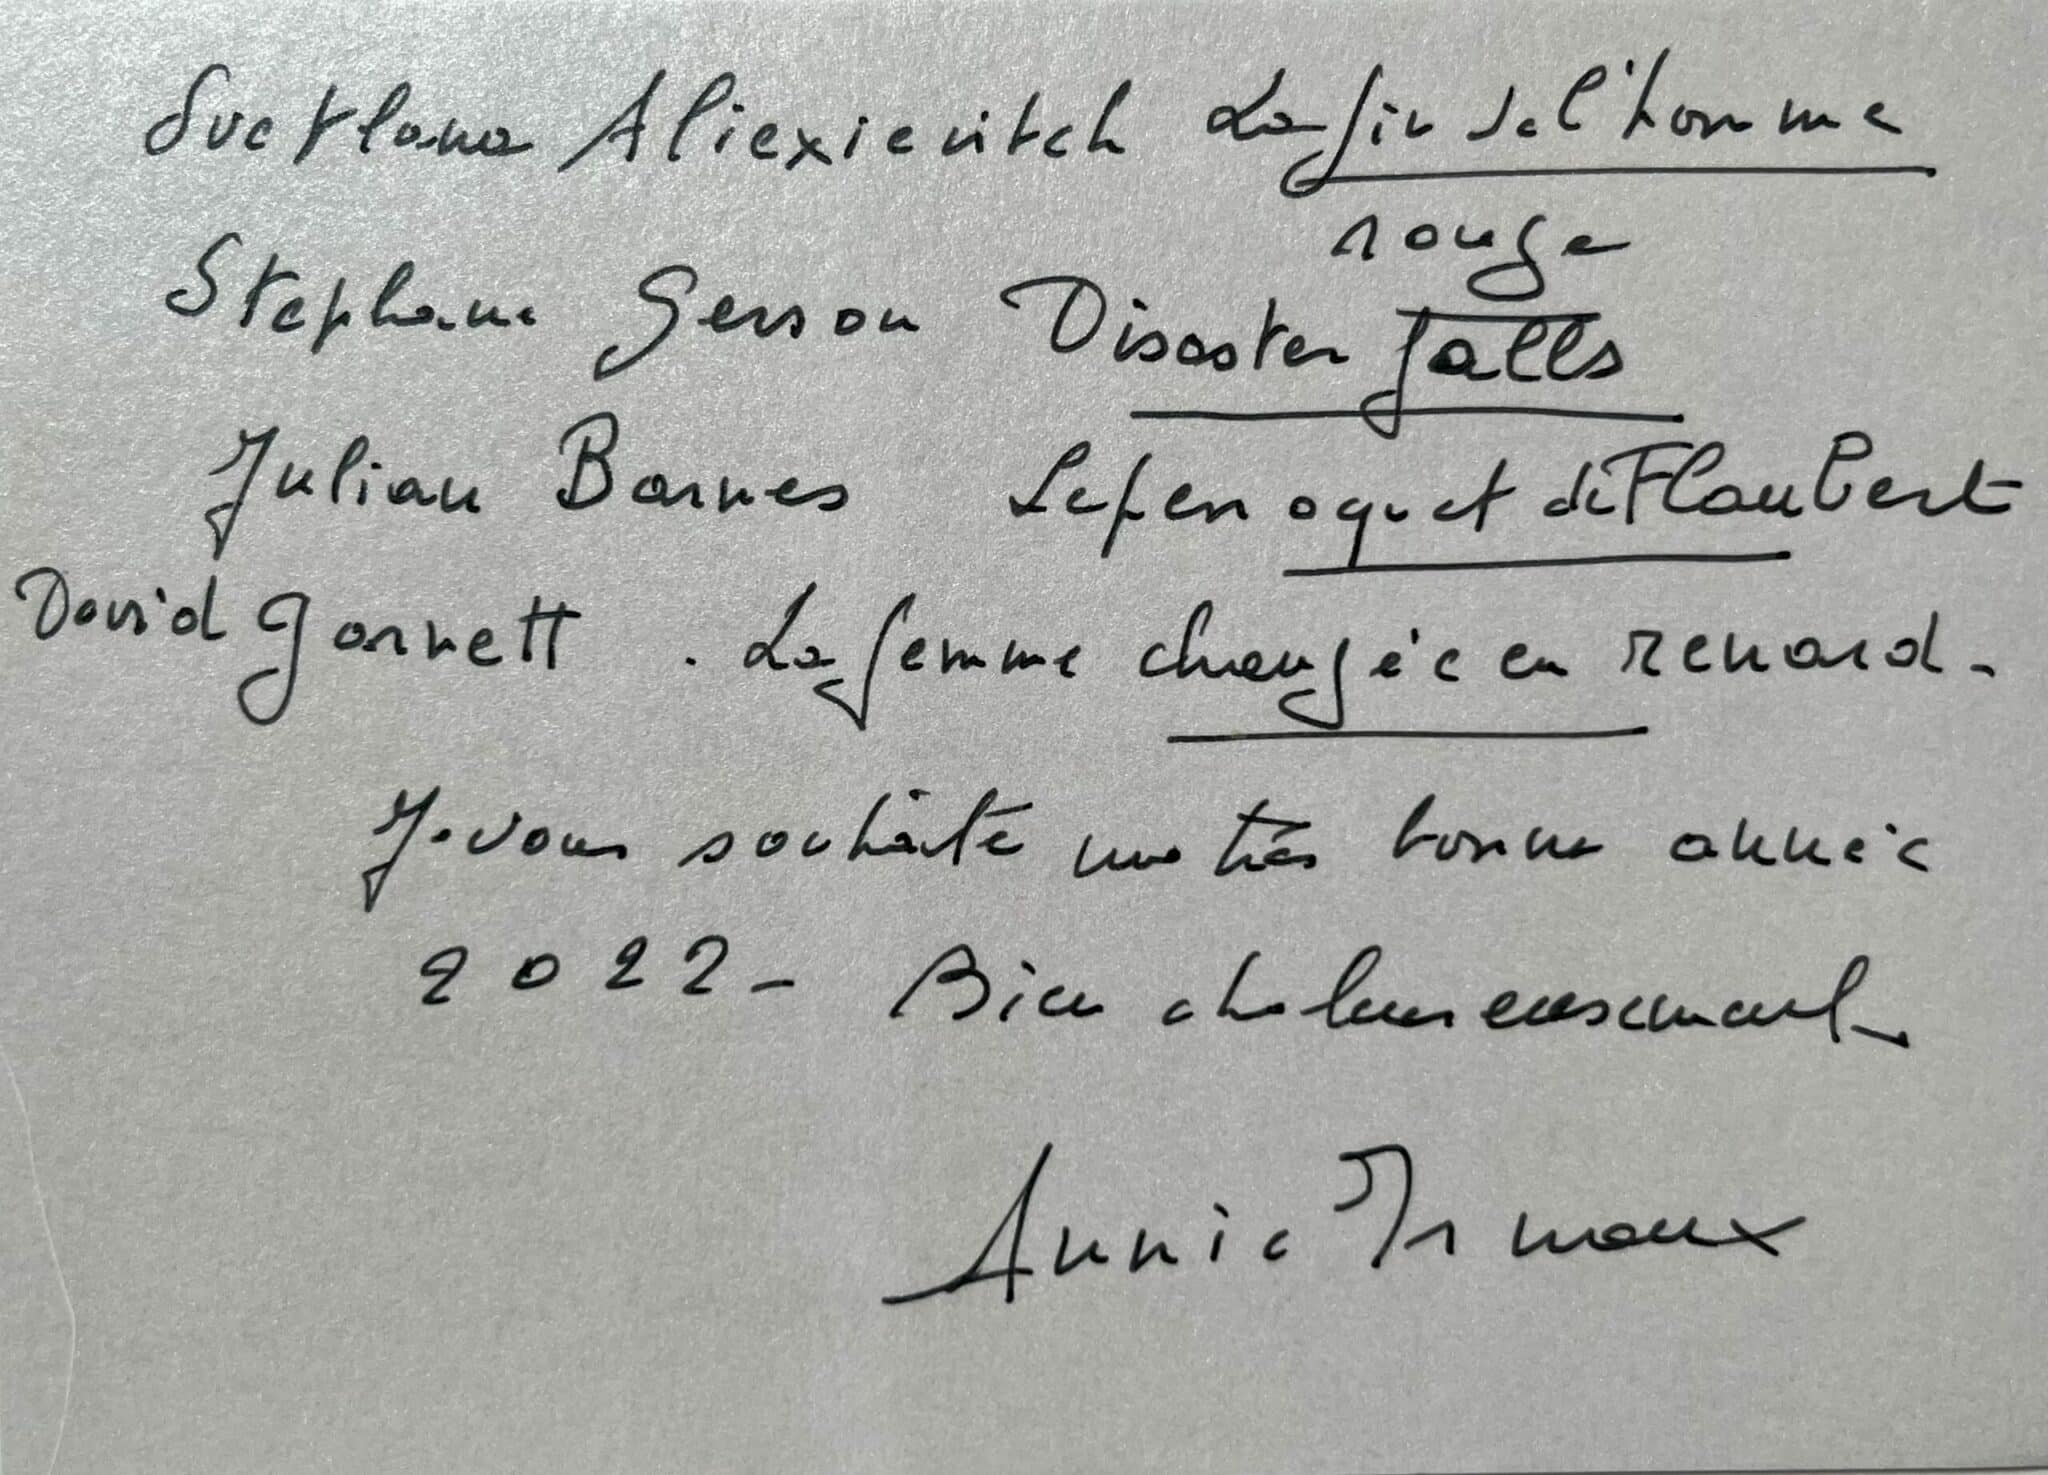 Svetlana Aliexievitch La fin de l'homme
rouge
Stephane Gerson Disaster falls
Julian Barnes Le perroquet de Flaubert
David Garnett. La femme changée en renard.
Je vous souhaite une très bonne année
2022 - Bien chaleureusement
Annie Ernaux